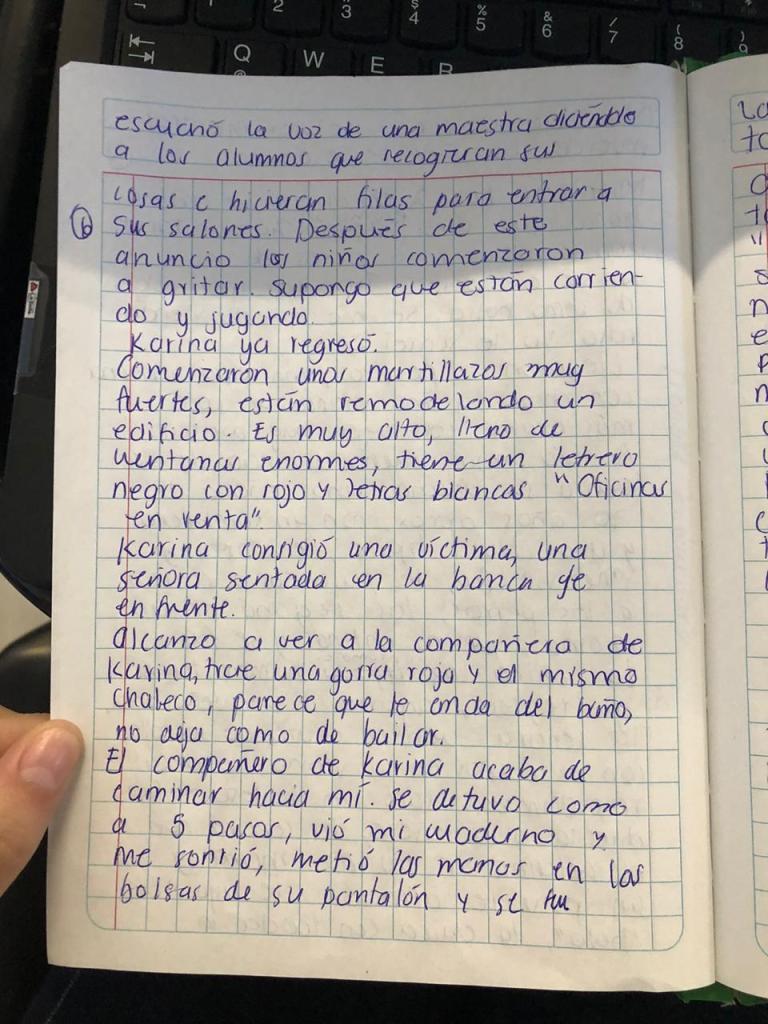 escuchó la voz de una maestra diciéndole
a los alumnos que recogieran sus
cosas e hicieran filas para entrar a
sus salones. Después de este
anuncio los niños comenzaron
a gritar. Supongo que están corrien-
do y jugando.
Karina ya regresó.
Comenzaron unos martillazos muy
fuertes, están remodelando un
edificio. Es muy alto, lleno de
ventanas enormes, tiene un letrero
negro con rojo y letras blancas "Oficinas
en venta"
Karina consigió una víctima, una
señora sentada en la banca de
en frente.
alcanzo a ver a la compañera de
Karina, trae una gorra roja y el mismo
chaleco, parece que le anda del baño,
no deja como de bailar.
El compañero de Karina acaba de
caminar hacia mí. se detuvo como
a 5 pasos, vió mi cuaderno y
me sonrió, metió las manos en las
bolsas de su pantalón y se fue